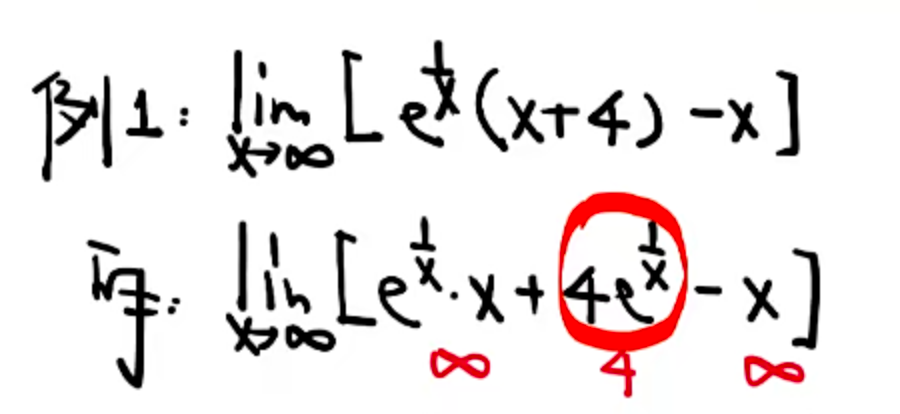 例1: lim x→∞ [e^(1/x)(x+4)-x]
lim x→∞ [e^(1/x)·x+4e^(1/x)-x]
∞ 4 ∞